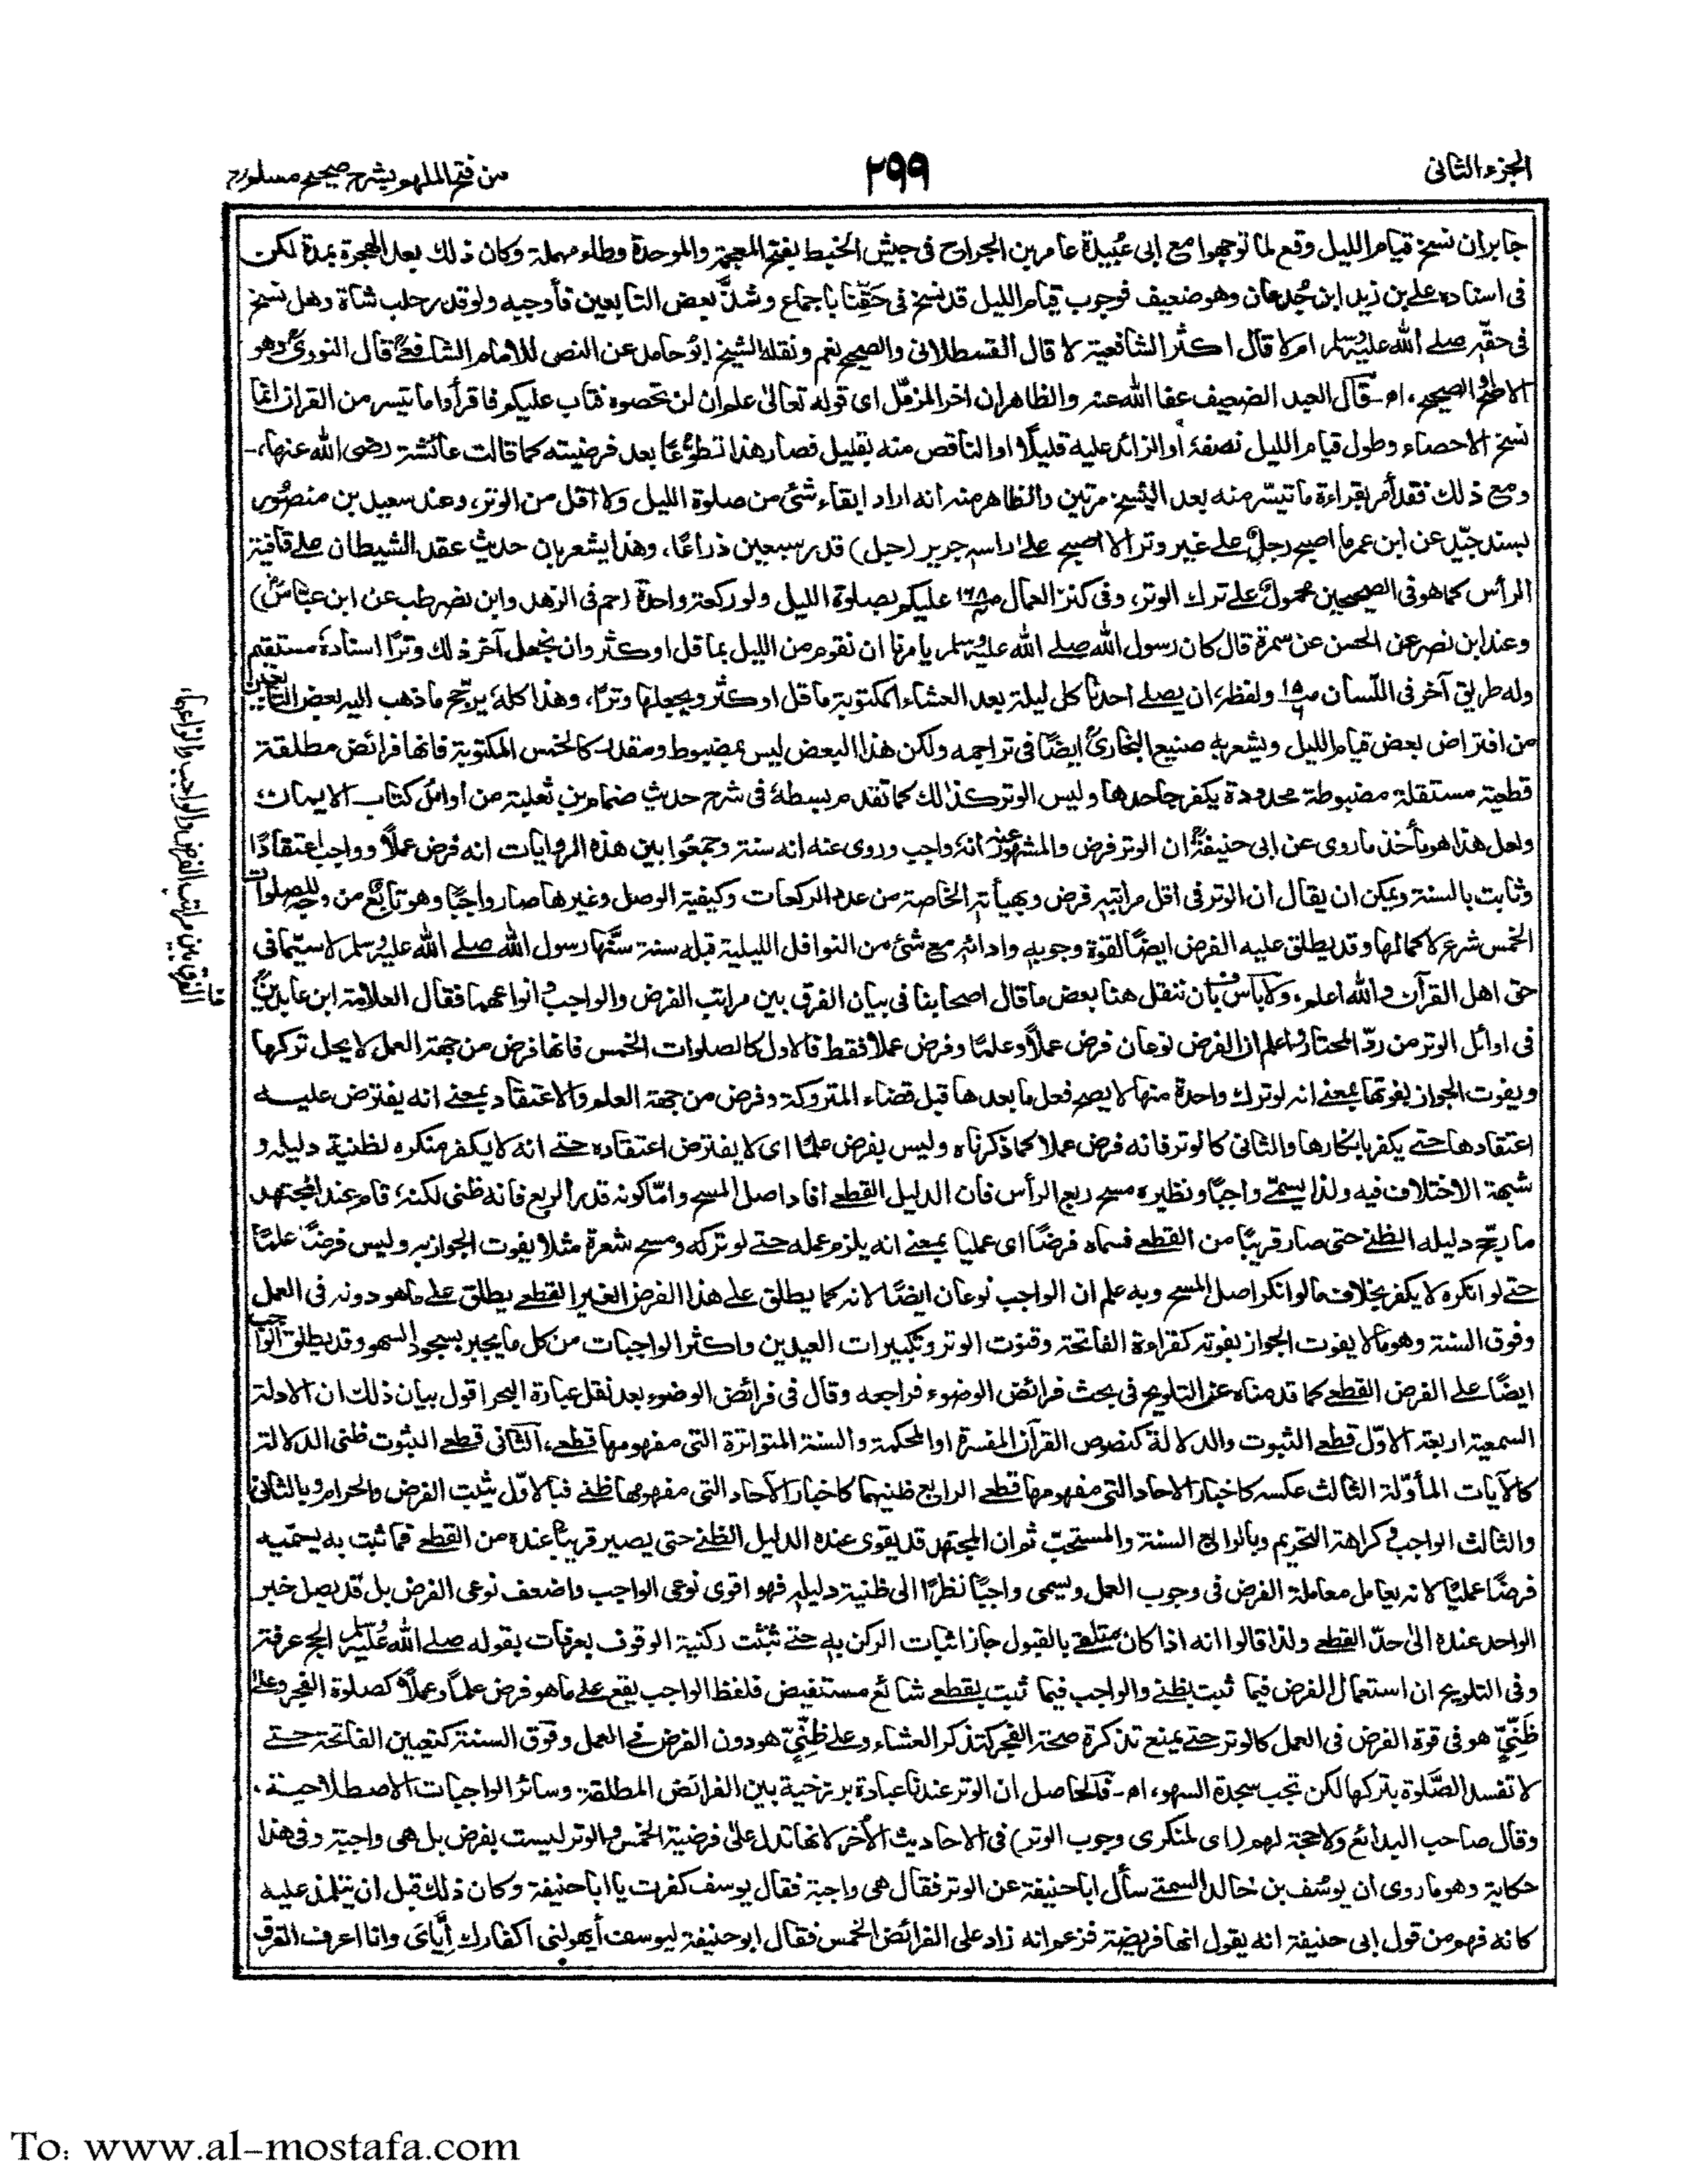 الجزء الثانى
٢٩٩
من فتح الملهم بشرح صحيح مسلم
جابر ان نسخ قيام الليل وقع لما توجهوا مع ابى عُبيدة عامر بن الجراح فى جيش الخبط بفتح المعجمة والموحدة وطاء مهملة وكان ذلك بعد الهجرة بمدة لكن
فى اسناده على بن زيد ابن جُدعان وهو ضعيف فوجوب قيام الليل قد نسخ فى حَقّنا باجماع وشذّ بعض التابعين فأوجبه ولو قدر حلب شاة وهل نسخ
فى حقّه صلے الله عليه وسلم ام لا قال اكثر الشافعية لا قال القسطلانى والصحيح نعم ونقله الشيخ ابو حامد عن النص للامام الشافعىؒ قال النووىؒ وهو
الاصح او الصحيح، اھ۔ قال العبد الضعيف عفا الله عنه والظاهر ان اخر المزمّل اى قوله تعالىٰ علم ان لن تحصوه فتاب عليكم فاقرأوا ما تيسر من القران انما
نسخ الاحصاء وطول قيام الليل نصفهٗ أو الزائد عليه قليلًا او الناقص منه بقليل فصار هذا تطوّعًا بعد فرضيته كما قالت عائشة رضى الله عنها،۔
ومع ذلك فقد أمر بقراءة ما تيسّر منه بعد النسخ مرتين والظاهر منه انه اراد ابقاء شئ من صلوة الليل ولا اقل من الوتر، وعند سعيد بن منصُور
بسند جيّد عن ابن عمر ما اصبح رجلٌ على غير وتر الا اصبح علىٰ راسه جرير (حبل) قدر سبعين ذراعًا، وهذا يشعر بان حديث عقد الشيطان علے قافية
الرأس كما هو فى الصحيحين محمولٌ علے ترك الوتر، وفى كنز العمال ص١٦٨ عليكم بصلوة الليل ولو ركعة واحدة (حم فى الزهد وابن نصر طب عن ابن عباسؓ)
وعند ابن نصر عن الحسن عن سمرة قال كان رسول الله صلے الله عليه وسلم يامرنا ان نقوم من الليل بما قل او كثر وان نجعل آخر ذلك وترًا اسنادهٗ مستقيم
وله طريق آخر فى اللسان ولفظهٗ، ان يصلے احدنا كل ليلة بعد العشاء المكتوبة ما قل او كثر ويجعلها وترًا، وهذا كلهٗ يرجّح ما ذهب اليه بعض التابعين
من افتراض بعض قيام الليل ويشعر به صنيع البخارىؒ ايضًا فى تراجمه ولكن هذا البعض ليس بمضبوط ومقدر كالخمس المكتوبة فانها فرائض مطلقة
قطعية مستقلة مضبوطة محدودة يكفر جاحدها وليس الوتر كذلك كما تقدم بسطهٗ فى شرح حديث ضمام بن ثعلبة من اوائل كتاب الايمان
ولعل هذا هو مأخذ ما روى عن ابى حنيفةؒ ان الوتر فرض والمشهور عنه انهٗ واجب وروى عنه انه سنة وجمعُوا بين هذه الروايات انه فرض عملًا وواجب اعتقادًا
وثابت بالسنة ويمكن ان يقال ان الوتر فى اقل مراتبه فرض وبهيأته الخاصة من عدد الركعات وكيفية الوصل وغيرها صار واجبًا وهو تابعٌ من وجه للصلوات
الخمس شرع لاكمالها وقد يطلق عليه الفرض ايضًا لقوة وجوبه واداؤه مع شئ من النوافل الليلية قبله سنة سنَّها رسول الله صلے الله عليه وسلم لا سيّما فى
حق اهل القرآن والله اعلم، ولا بأس بان ننقل هنا بعض ما قال اصحابنا فى بيان الفرق بين مراتب الفرض والواجب وانواعهما فقال العلامة ابن عابدينؒ
فى اوائل الوتر من ردّ المحتار واعلم ان الفرض نوعان فرض عملاً وعلمًا وفرض عملاً فقط فالاول كالصلوات الخمس فانها فرض من جهة العمل لا يحل تركها
ويفوت الجواز بفوتها بمعنے انه لو ترك واحدة منها لا يصح فعل ما بعدها قبل قضاء المتروكة وفرض من جهة العلم والاعتقاد بمعنے انه يفترض عليه
اعتقادها حتے يكفر بانكارها والثانى كالوتر فانه فرض عملا كما ذكرناه وليس بفرض علمًا اى لا يفترض اعتقاده حتے انه لا يكفر منكره لظنية دليله و
شبهة الاختلاف فيه ولذا يسمّے واجبًا ونظيره مسح ربع الرأس فان الدليل القطعے افاد اصل المسح وامّا كونه قدر الربع فانه ظنى لكنهٗ قام عند المجتهد
ما رجّح دليله الظنے حتى صار قريبًا من القطعے فسماه فرضًا اى عمليا بمعنے انه يلزم عمله حتے لو تركه ومسح شعرة مثلا يفوت الجواز به وليس فرضًا علمًا
حتے لو انكره لا يكفر بخلاف ما لو انكر اصل المسح وبه علم ان الواجب نوعان ايضًا لانه كما يطلق على هذا الفرض الغير القطعے يطلق علے ما هو دونه فى العمل
وفوق السنة وهو ما لا يفوت الجواز بفوته كقراءة الفاتحة وقنوت الوتر وتكبيرات العيدين واكثر الواجبات من كل ما يجبر بسجود السهو وقد يطلق الواجب
ايضًا على الفرض القطعے كما قدمناه عن التلويح فى بحث فرائض الوضوء فراجعه وقال فى فرائض الوضوء بعد نقل عبارة البحر اقول بيان ذلك ان الادلة
السمعية اربعة الاوّل قطعے الثبوت والدلالة كنصوص القرآن المفسرة او المحكمة والسنة المتواترة التى مفهومها قطعے، الثانى قطعے الثبوت ظنى الدلالة
كالآيات المأوّلة الثالث عكسه كاخبار الاحاد التى مفهومها قطعے الرابع ظنيهما كاخبار الآحاد التى مفهومها ظنے فبالاوّل يثبت الفرض والحرام وبالثانى
والثالث الواجب وكراهة التحريم وبالرابع السنة والمستحب ثم ان المجتهد قد يقوى عنده الدليل الظنے حتى يصير قريبًا عنده من القطعے فما ثبت به يسمّيه
فرضًا عمليًا لانه يعامل معاملة الفرض فى وجوب العمل ويسمى واجبًا نظرًا الى ظنية دليله فهو اقوى نوعى الواجب واضعف نوعى الفرض بل قد يصل خبر
الواحد عنده الىٰ حدّ القطعے ولذا قالوا انه اذا كان متلقے بالقبول جاز اثبات الركن به حتے ثبتت ركنية الوقوف بعرفات بقوله صلے الله عليه وسلم الحج عرفة
وفى التلويح ان استعمال الفرض فيما ثبت بظنے والواجب فيما ثبت بقطعے شائع مستفيض فلفظ الواجب يقع علے ما هو فرض علماً وعملاً كصلوة الفجر وعلے
ظَنّىّ هو فى قوة الفرض فى العمل كالوتر حتے يمنع تذكره صحة الفجر كتذكر العشاء وعلے ظَنّىّ هو دون الفرض فے العمل وفوق السنة كتعيين الفاتحة حتے
لا تفسد الصَّلوة بتركها لكن تجب سجدة السهو، اھ۔ فالحاصل ان الوتر عندنا عبادة برزخية بين الفرائض المطلقة وسائر الواجبات الاصطلاحية،
وقال صاحب البدائع ولا حجة لهم (اى لمنكرى وجوب الوتر) فى الاحاديث الأخر لانها تدل علىٰ فرضية الخمس والوتر ليست بفرض بل هى واجبة وفى هذا
حكاية وهو ما روى ان يوسُف بن خالد السمتے سأل ابا حنيفة عن الوتر فقال هى واجبة فقال يوسف كفرت يا ابا حنيفة وكان ذلك قبل ان يتلمذ عليه
كانه فهم من قول ابى حنيفة انه يقول انها فريضة فزعم انه زاد على الفرائض الخمس فقال ابو حنيفة ليوسف أيهولنى اكفارك إيّاىَ وانا اعرف الفرق
الفرق بين مراتب الفرض والواجب وانواعهما،
To: www.al-mostafa.com